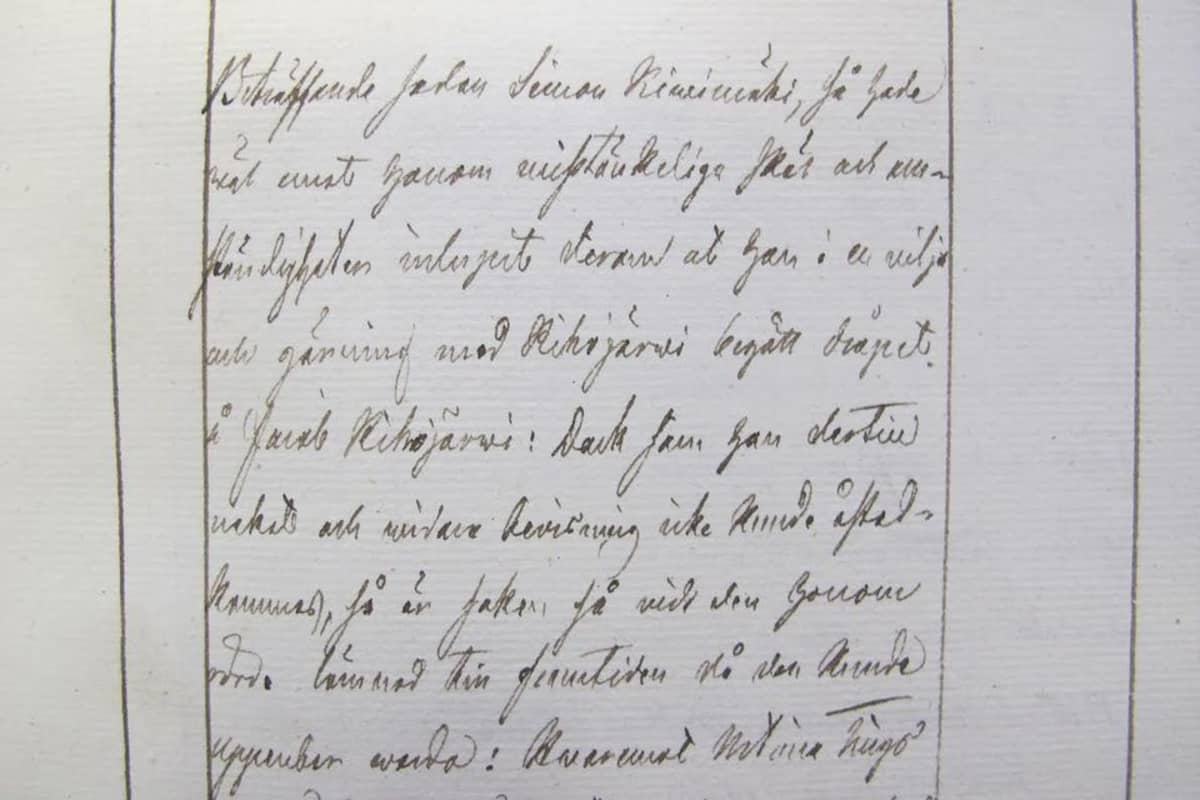 Beträffande sedan Simon Kiwimäki, så hade
wäl emot honom misstänkeliga skäl och om-
ständigheter inlupit derom at han i en vilja
och gärning med Kihrjärwi begått dråpet
å Jacob Kihrjärwi: Dock som han dertill
nekat och widare bevisning icke kunde åstad-
kommas, så är saken så vidt den honom
rörde lämnad till framtiden då den kunde
uppenbar warda: Hwaremot